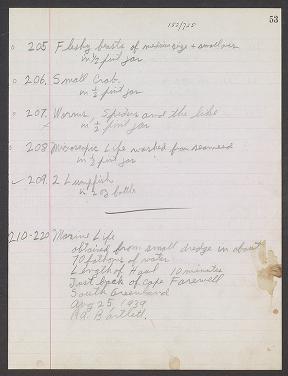 53
152/725
205 Fleshy bests of medium size + smallones
in ½ pint jar
206. Small Crab.
in ½ pint jar
207. Worms, Spiders and the like
in ½ pint jar
208 Microscopic Life washed from seaweed
in ½ pint jar
209. 2 Lumpfish
in ½ oz bottle
210-220 Marine Life
obtained from small dredge in about
70 fathoms of water
Length of Haul 10 minutes
Just back of Cape Farewell
South Greenland
Aug 25, 1939
R.A. Bartlett.